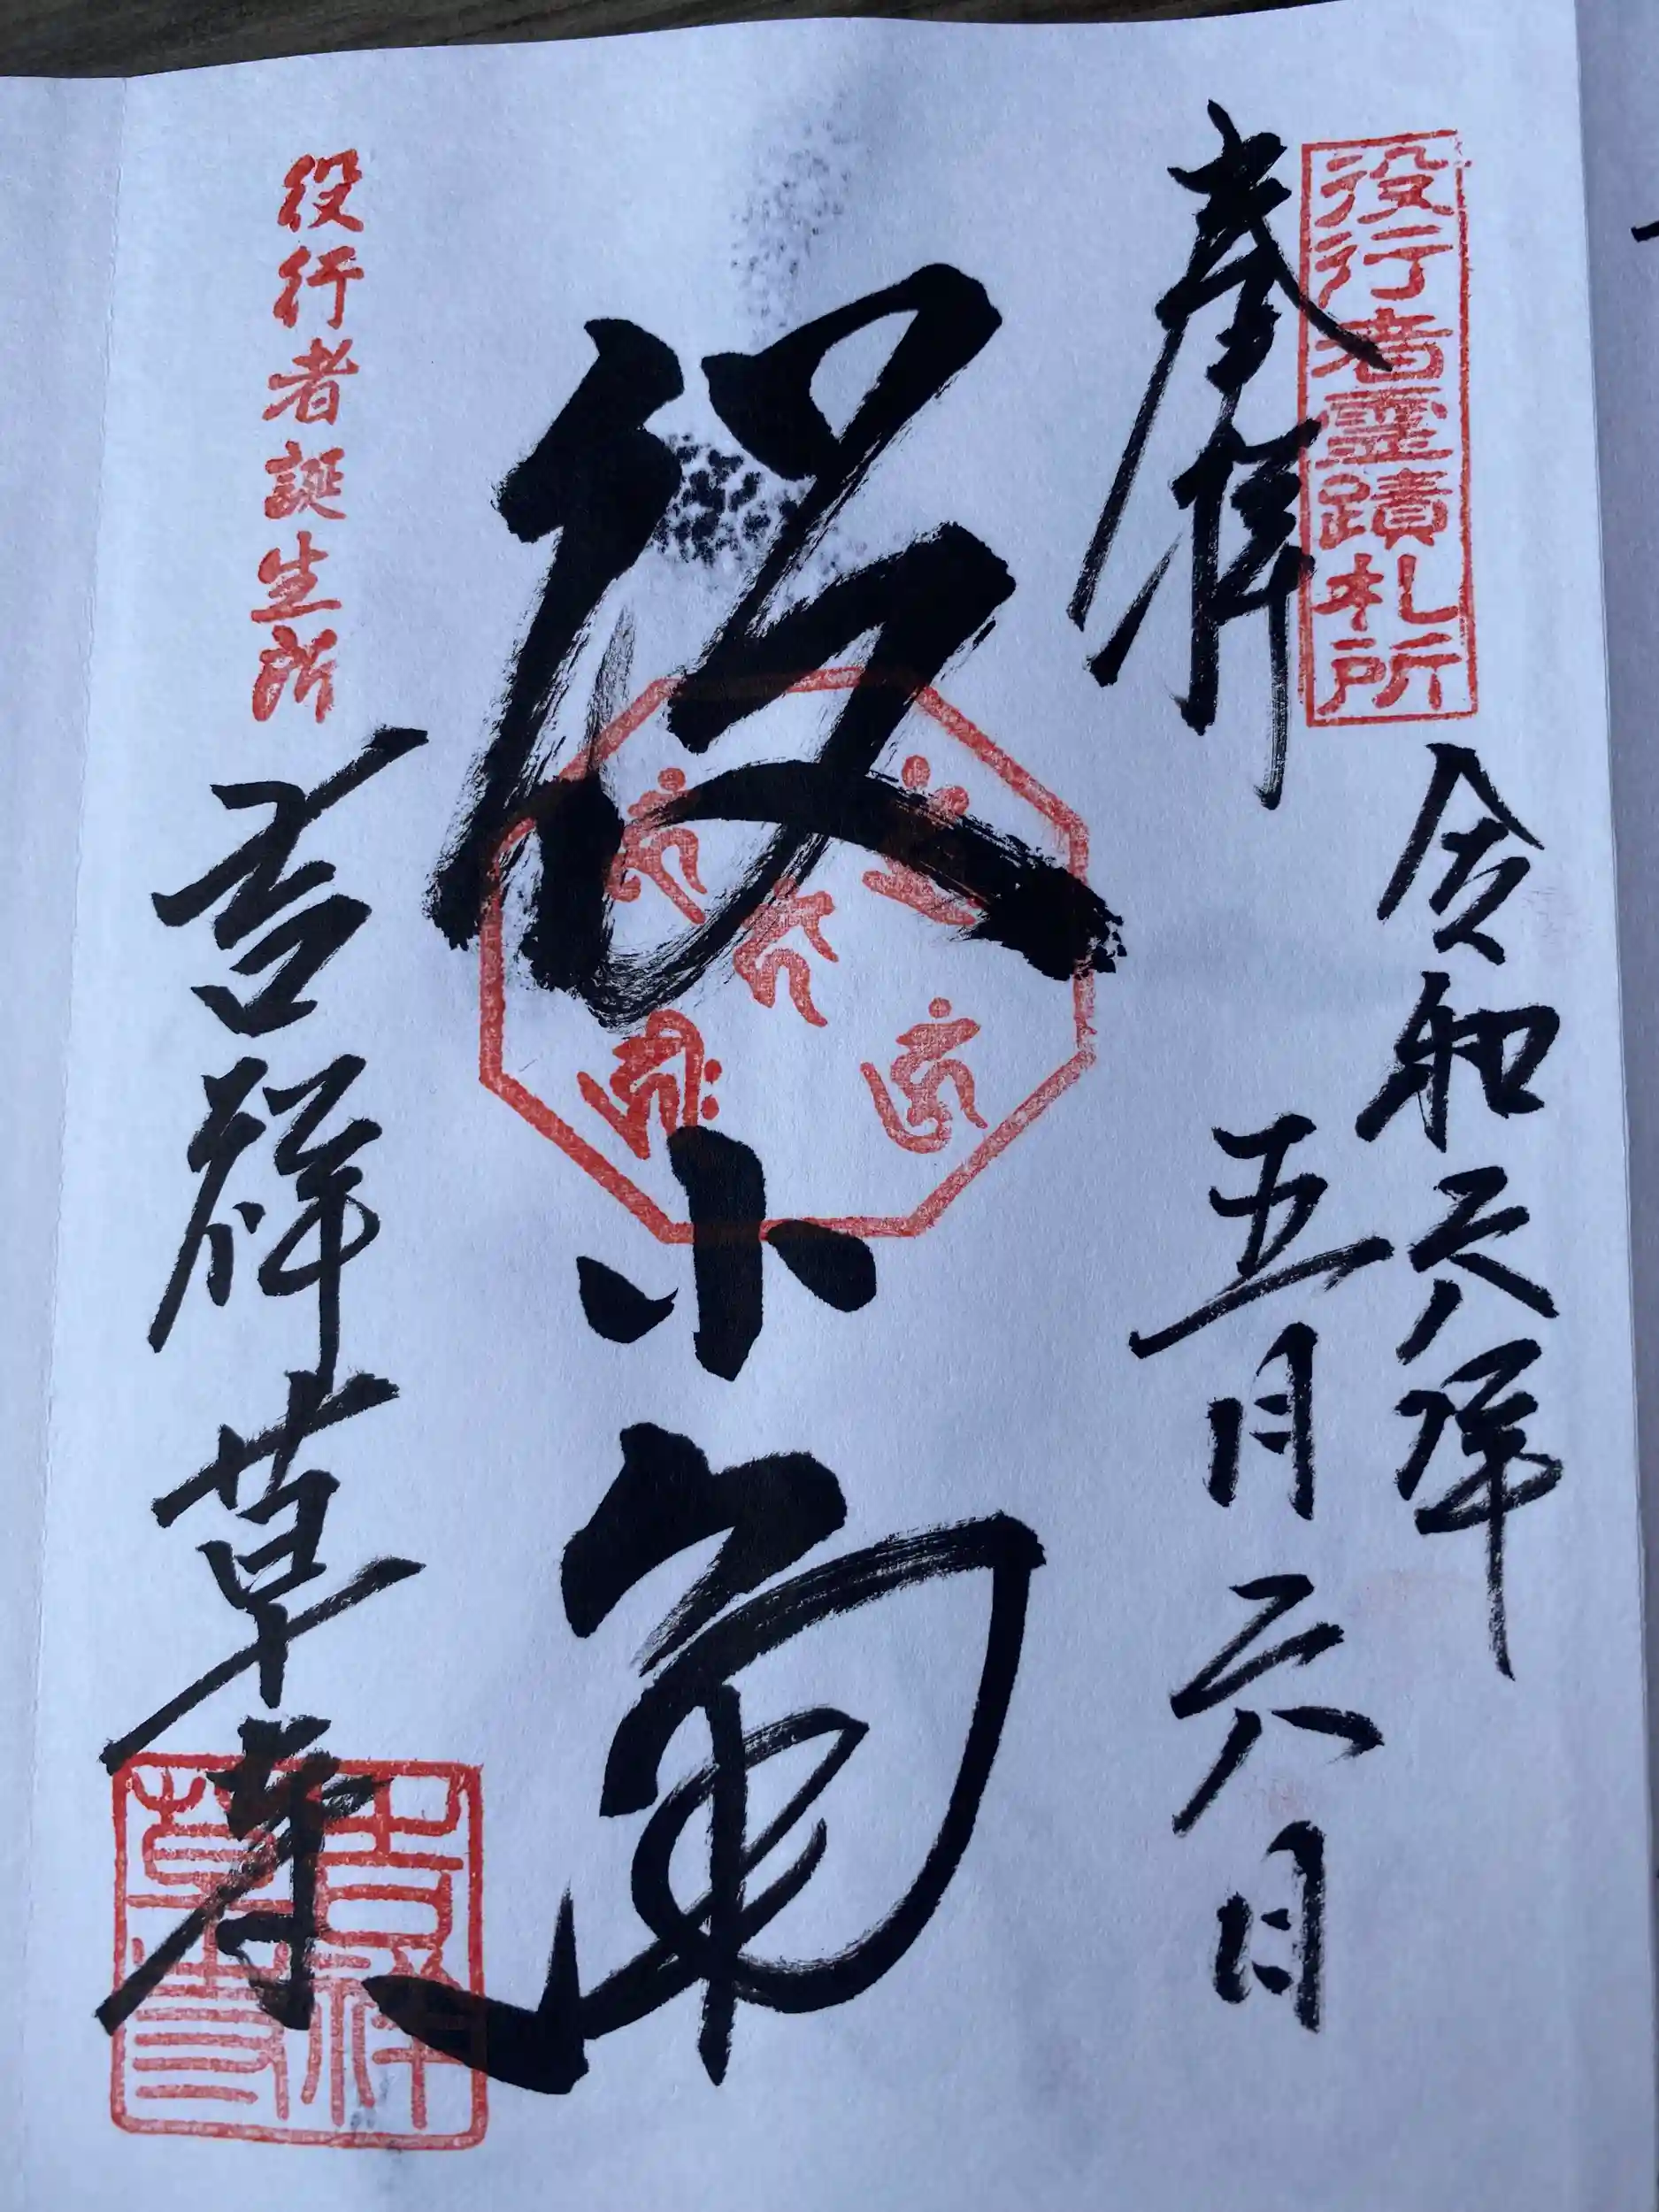 役行者霊蹟札所
奉拝
令和六年
五月六日
役小角
役行者誕生所
吉祥草寺
吉祥草寺